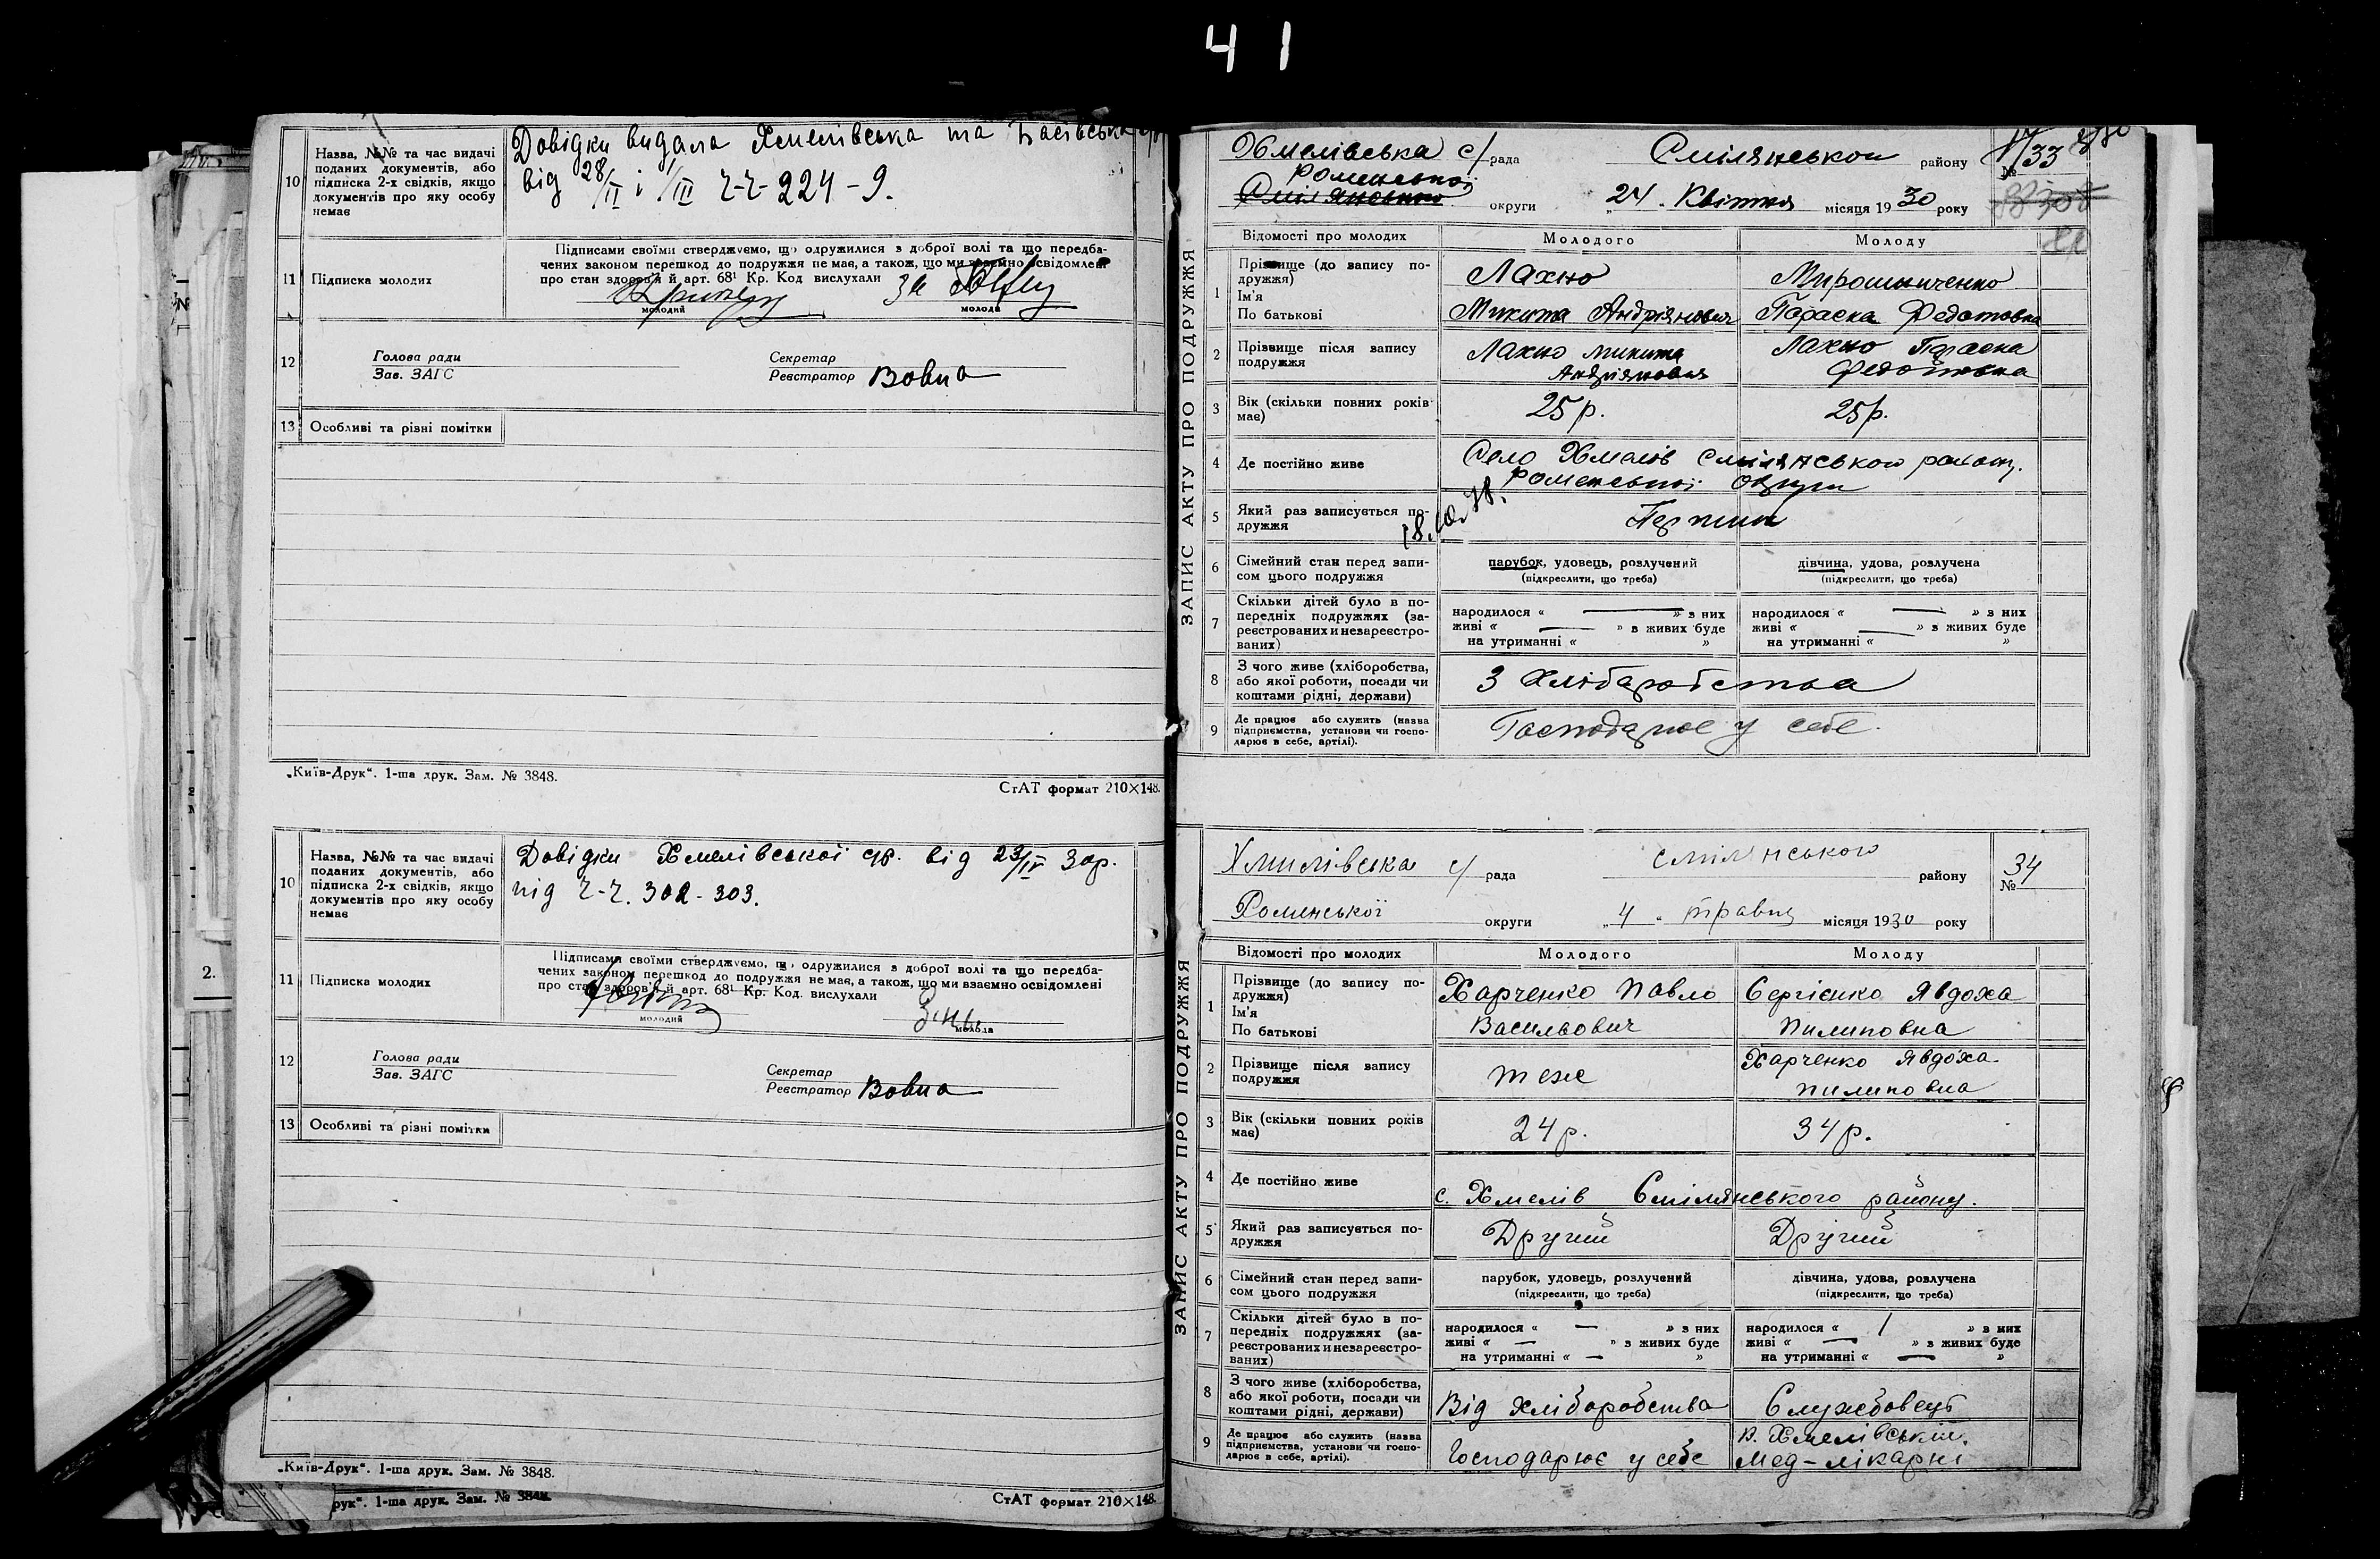 41
10
Назва, №№ та час видачі
поданих документів, або
підписка 2-х свідків, якщо
документів про яку особу
немає
Довідки видала Хмелівська та Басівська
від 28/II і 1/III ч-ч-224-9.
11
Підписка молодих
Підписами своїми стверджуємо, що одружилися з доброї волі та що передба-
чених законом перешкод до подружжя не має, а також, що ми взаємно освідомлені
про стан здоров'я й арт. 68¹ Кр. Код вислухали
за
молодий
молода
12
Голова ради
Зав. ЗАГС
Секретар
Реєстратор Вовна
13
Особливі та різні помітки
„Київ-Друк“. 1-ша друк. Зам. № 3848.
СтАТ формат 210×148.
10
Назва, №№ та час видачі
поданих документів, або
підписка 2-х свідків, якщо
документів про яку особу
немає
Довідки Хмелівської с/р. від 23/IV 30р.
під ч-ч. 302-303.
11
Підписка молодих
Підписами своїми стверджуємо, що одружилися з доброї волі та що передба-
чених законом перешкод до подружжя не має, а також, що ми взаємно освідомлені
про стан здоров'я й арт. 68¹ Кр. Код. вислухали
молодий
молода
12
Голова ради
Зав. ЗАГС
Секретар
Реєстратор Вовна
13
Особливі та різні помітки
„Київ-Друк“. 1-ша друк. Зам. № 3848.
рук“. 1-ша друк. Зам. № 3848.
СтАТ формат 210×148.
2.
ЗАПИС АКТУ ПРО ПОДРУЖЖЯ
Хмелівська с/рада Смілянського району № 33
Роменської
округи „24. Квітня місяця 1930 року
Відомості про молодих
Молодого
Молоду
1
Прізвище (до запису по-
дружжя)
Ім'я
По батькові
Лахно
Микита Андріянович
Мирошниченко
Параска Федотовна
2
Прізвище після запису
подружжя
Лахно Микита
Андріянович
Лахно Параска
Федотовна
3
Вік (скільки повних років
має)
25 р.
25 р.
4
Де постійно живе
Село Хмелів Смілянського району.
Роменської округи
5
Який раз записується по-
дружжя
18.10.78.
Перший
6
Сімейний стан перед запи-
сом цього подружжя
парубок, удовець, розлучений
(підкреслити, що треба)
дівчина, удова, розлучена
(підкреслити, що треба)
7
Скільки дітей було в по-
передніх подружжях (за-
реєстрованих и незареєстро-
ваних)
народилося « — » з них
живі « — » з живих буде
на утриманні « »
народилося « — » з них
живі « — » з живих буде
на утриманні « »
8
З чого живе (хліборобства,
або якої роботи, посади чи
коштами рідні, держави)
З Хліборобства
9
Де працює або служить (назва
підприємства, установи чи госпо-
дарює в себе, артілі).
Господарює у себе.
ЗАПИС АКТУ ПРО ПОДРУЖЖЯ
Хмилівська с/рада Смілянського району № 34
Роменської округи „4. травня місяця 1930 року
Відомості про молодих
Молодого
Молоду
1
Прізвище (до запису по-
дружжя)
Ім'я
По батькові
Харченко Павло
Васильович
Сергієнко Явдоха
Пилиповна
2
Прізвище після запису
подружжя
теж
Харченко Явдоха
Пилиповна
3
Вік (скільки повних років
має)
24 р.
34 р.
4
Де постійно живе
с. Хмелів Смілянського району.
5
Який раз записується по-
дружжя
Другий
Другий
6
Сімейний стан перед запи-
сом цього подружжя
парубок, удовець, розлучений
(підкреслити, що треба)
дівчина, удова, розлучена
(підкреслити, що треба)
7
Скільки дітей було в по-
передніх подружжях (за-
реєстрованих и незареєстро-
ваних)
народилося « — » з них
живі « — » з живих буде
на утриманні « — »
народилося « 1 » з них
живі « — » з живих буде
на утриманні « — »
8
З чого живе (хліборобства,
або якої роботи, посади чи
коштами рідні, держави)
Від хліборобства
Службовець
9
Де працює або служить (назва
підприємства, установи чи госпо-
дарює в себе, артілі).
Господарює у себе
в. Хмелівській.
Мед-лікарні